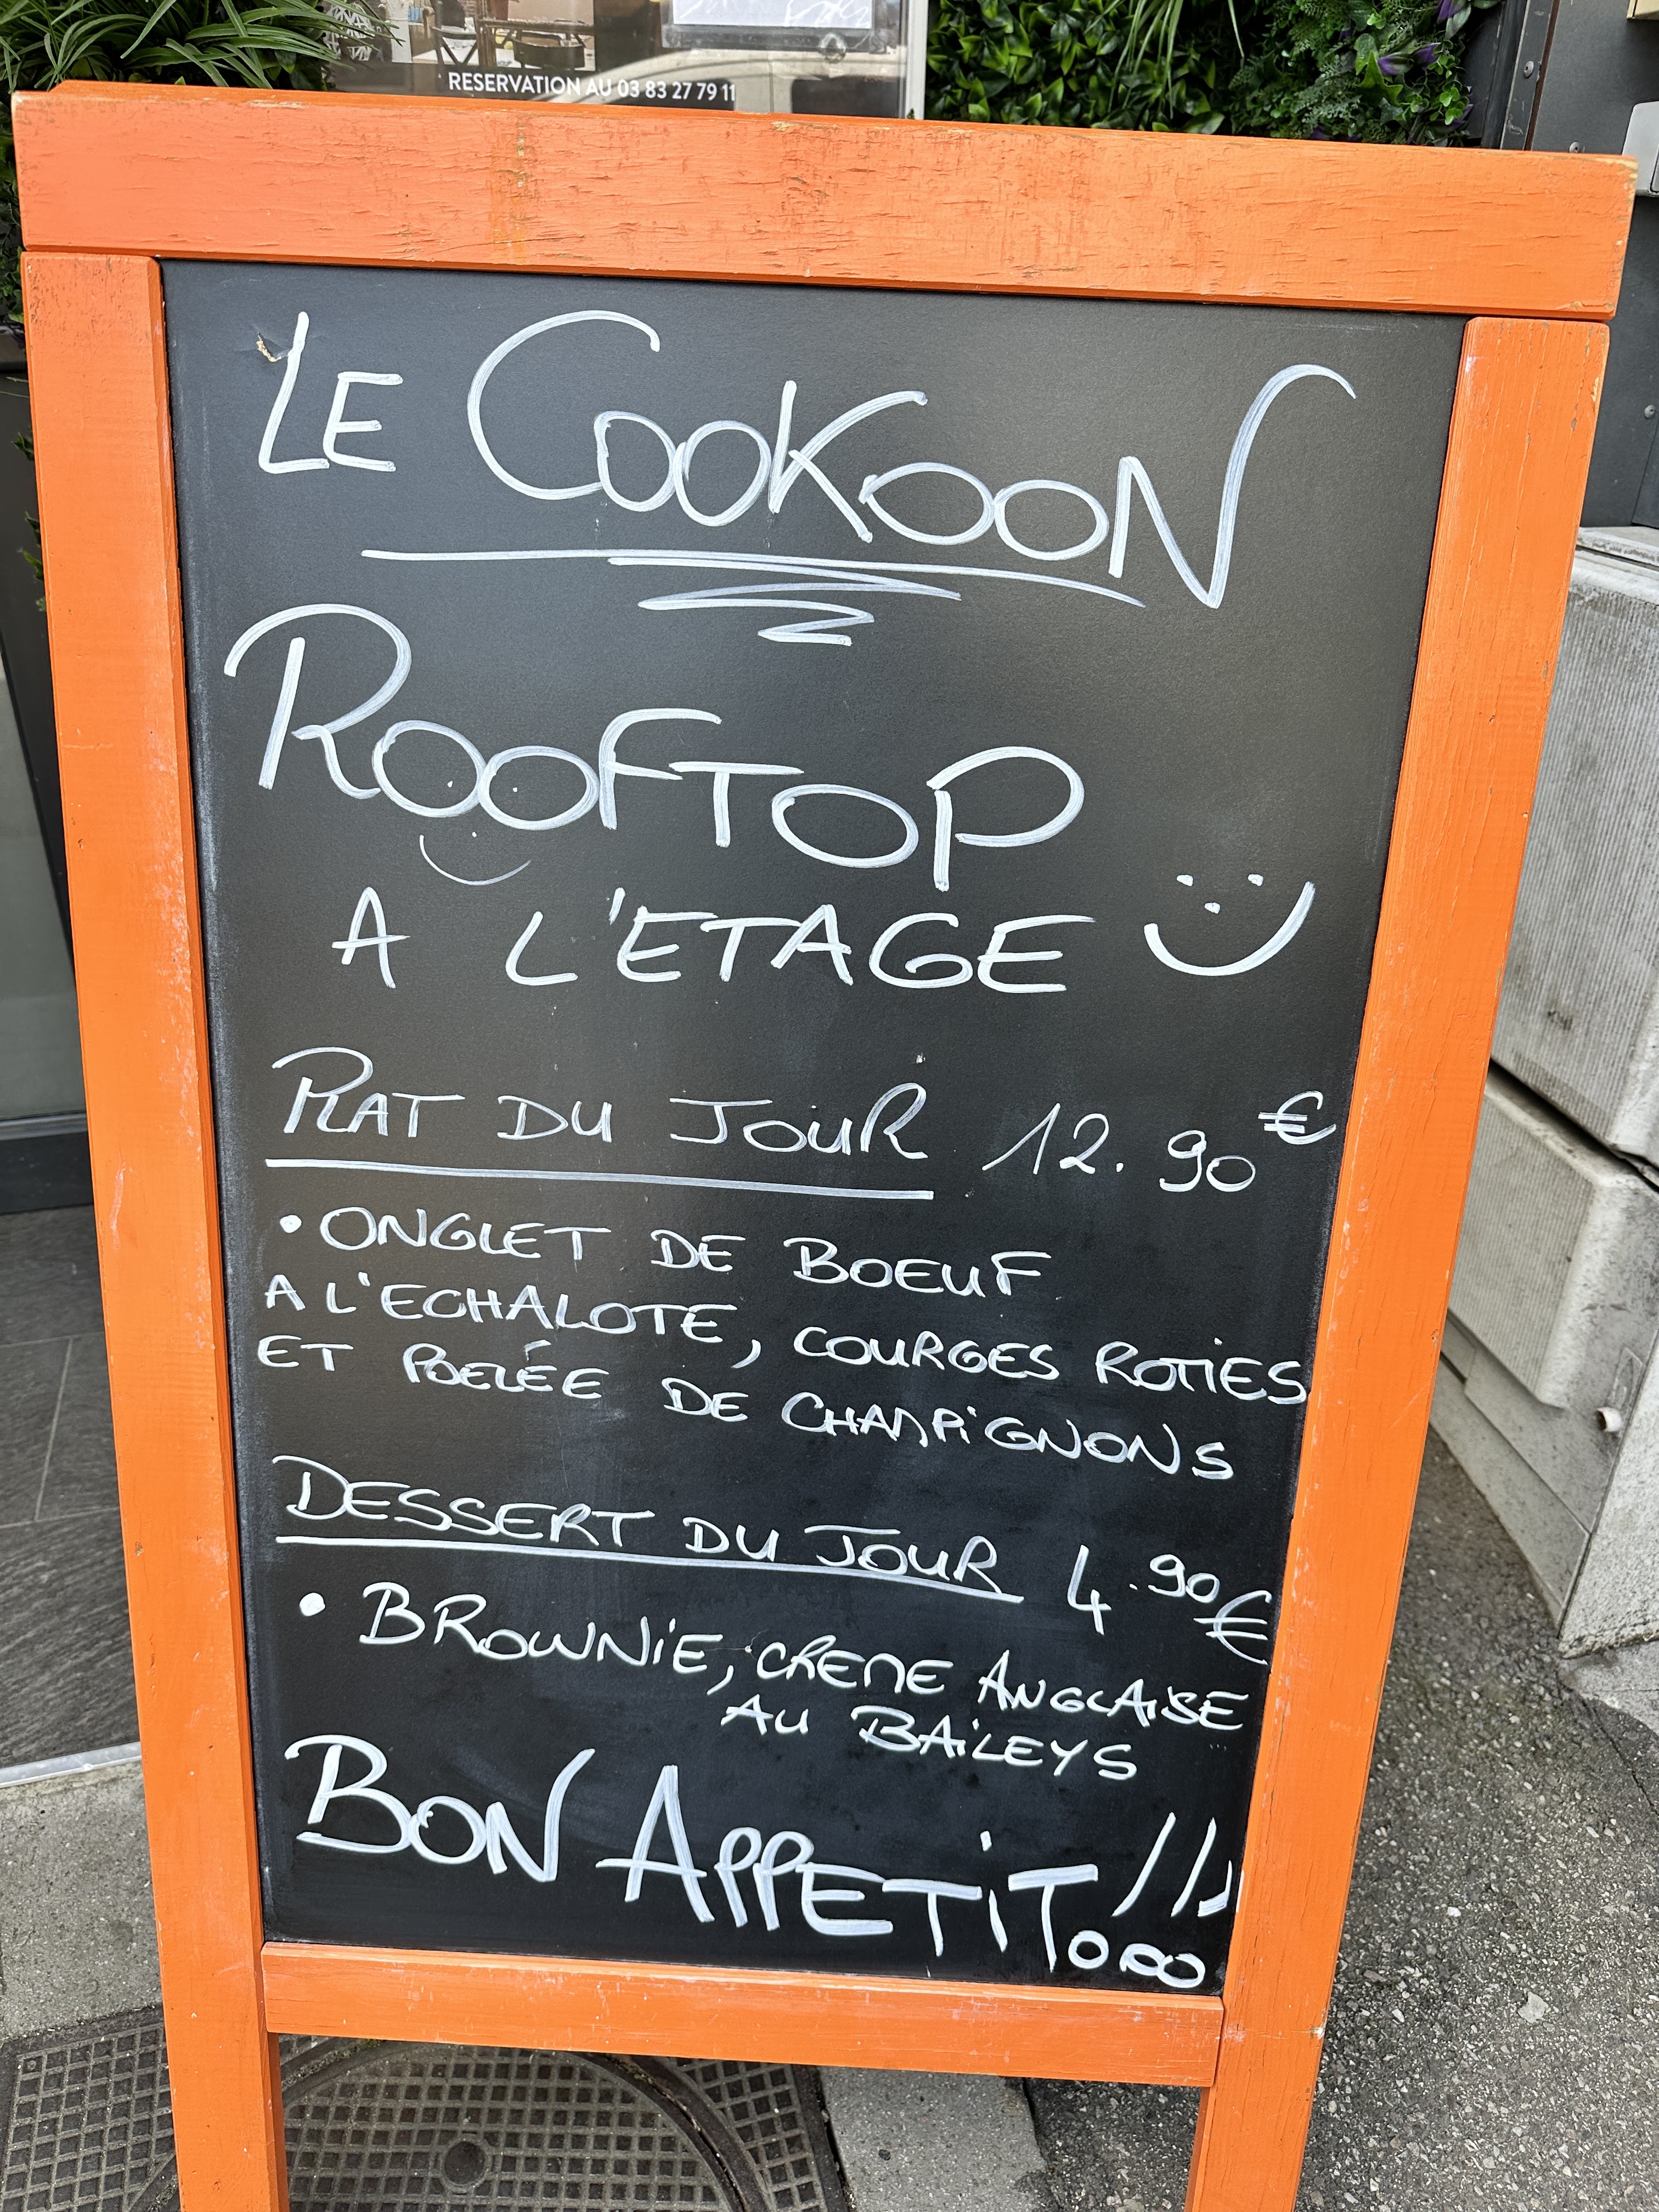 RESERVATION AU 03 83 27 79 11
LE COOKOON
ROOFTOP
A L'ETAGE
PLAT DU JOUR 12.90€
• ONGLET DE BOEUF
A L'ECHALOTE, COURGES ROTIES
ET POELÉE DE CHAMPIGNONS
DESSERT DU JOUR 4.90€
• BROWNIE, CREME ANGLAISE
AU BAILEYS
BON APPETIT!!!